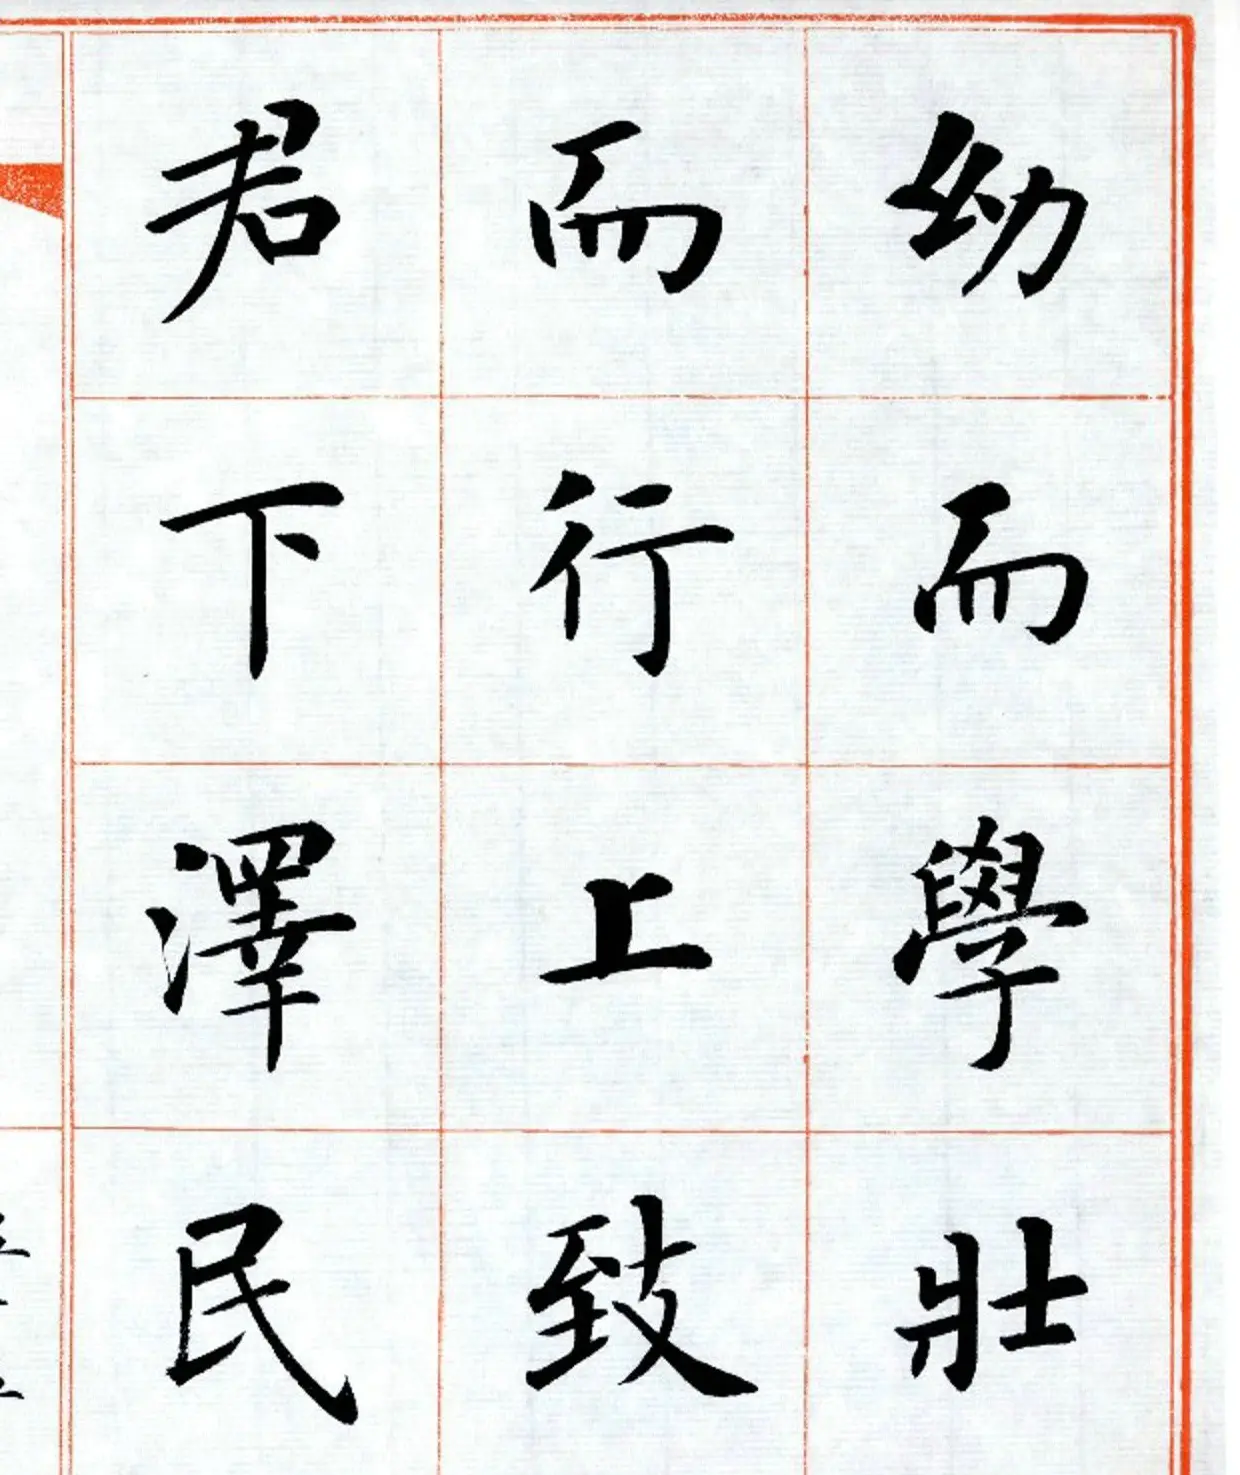 幼而學壯
而行上致
君下澤民